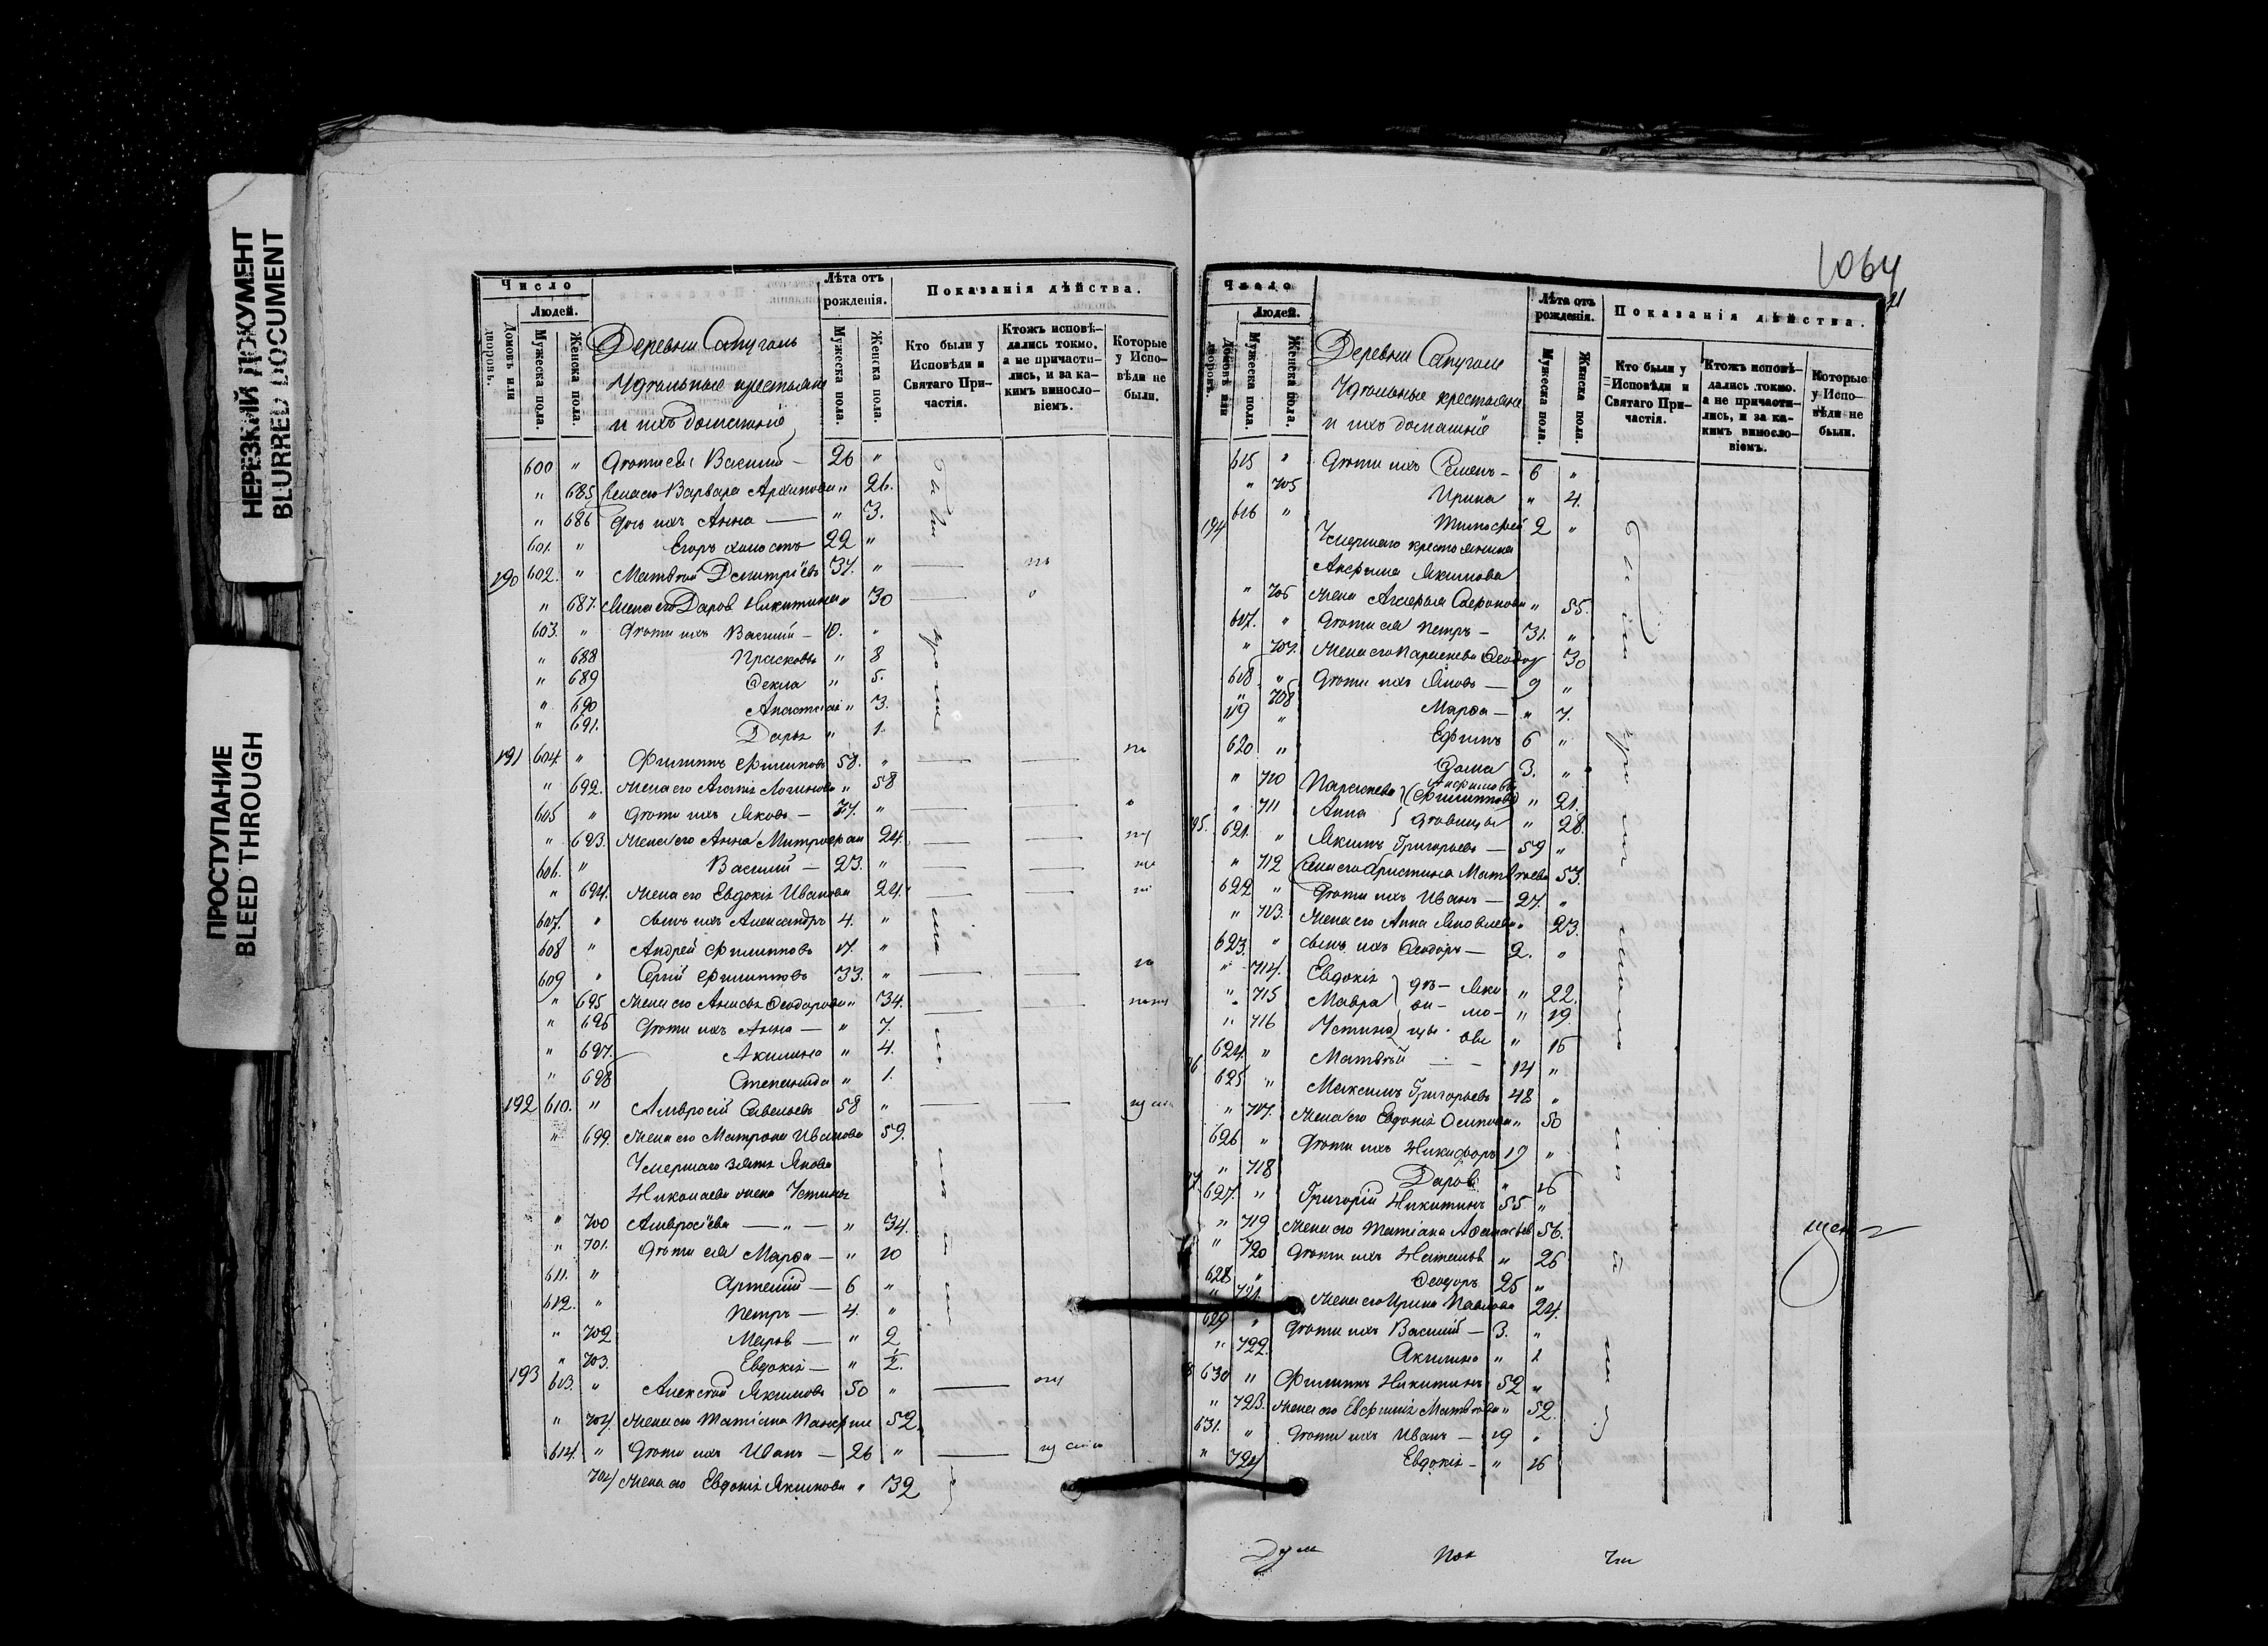 НЕРЕЗКИЙ ДОКУМЕНТ
BLURRED DOCUMENT
ПРОСТУПАНИЕ
BLEED THROUGH
Число
Людей.
Домовъ или дворовъ.
Мужеска пола.
Женска пола.
Деревни Сапуголь
Удѣльные крестьяне
и ихъ домашніе
Лѣта отъ рожденія.
Мужеска пола.
Женска пола.
Показанія дѣйства.
Кто были у Исповѣди и Святаго Причастія.
Ктожъ исповѣ-
дались токмо,
а не причасти-
лись, и за ка-
кимъ винносло-
віемъ.
Которые
у Испо-
вѣди не
были.
600 " Дѣти его Василій — 26 "
" 685 Жена его Варвара Архипова " 26.
" 686 Дочь ихъ Анна — " 3.
601. " Егоръ холостъ 22 "
190 602. " Матвѣй Дмитріевъ 37. "
" 687. Жена его Дарья Никитина " 30
603. " Дѣти ихъ Василій — 10. "
" 688 Прасковья " 8
" 689 Ѳекла " 5.
" 690 Анастасія " 3.
" 691. Дарья " 1.
191 604. " Филиппъ Филиповъ 58. "
" 692. Жена его Агафья Логинова " 58
605 " Дѣти ихъ Яковъ — "
" 693. Жена его Анна Митрофан 24.
606. " Василій — 23. "
" 694. Жена его Евдокія Иванова 24.
607. " сынъ ихъ Александръ 4. "
608 " Андрей Филипповъ 17. "
609 " Сергій Филипповъ 33. "
" 695 Жена его Анисья Ѳеодорова " 34.
" 696 Дѣти ихъ Анна — " 7.
" 697. Акилина " 4.
" 698 Степанида " 1.
192 610. " Амвросій Савельевъ 58 "
" 699. Жена его Матрона Иванова 59.
Умершаго зятя Якова
Николаева жена Устинья
" 700 Амвросіева — " — " 34.
" 701. Дѣти ея Марѳа — " 10
611. " Артемій — 6 "
612. " Петръ — 4. "
" 702 Марья — " 2
" 703. Евдокія — " ½.
193 613. " Алексѣй Якимовъ 50 "
" 704. Жена его Татіана Панфил 52.
614. " Дѣти ихъ Иванъ — 26 "
704 Жена его Евдокія Якимова " 32
1064
Число
Людей.
Домовъ или дворовъ.
Мужеска пола.
Женска пола.
Деревни Сапуголь
Удѣльные крестьяне
и ихъ домашніе
Лѣта отъ рожденія.
Мужеска пола.
Женска пола.
Показанія дѣйства.
Кто были у
Исповѣди и
Святаго При-
частія.
Ктожъ исповѣ-
дались токмо.
а не причасти-
лись, и за ка-
кимъ винносло-
віемъ.
Которые
у Испо-
вѣди не
были.
615 " Дѣти ихъ Семенъ — 6 "
" 705 Ирина " 4.
616 " Тимоѳей 2 "
194 Умершаго крестьянина
Анфима Якимова
" 706 жена " 55.
617. " Дѣти ея Петръ — 31. "
" 707. Жена его Параскева Ѳеодор 30
618 " Дѣти ихъ Яковъ — 9 "
" 708 Марѳа — " 7.
619 " Ефимъ 6 "
620 " Ѳома 3. "
" 710 Параскева Анфимовы " 21.
" 711 Анна дѣвицы " 28.
95. 621. " Якимъ Григорьевъ — 59 "
" 712 Жена его Христина Матвѣева 53.
622 " Дѣти ихъ Иванъ — 27. "
" 713. Жена его Анна Яковлева " 23.
623. " сынъ ихъ Ѳеодоръ — 2. "
" 714. Евдокія дѣ- Яки " 22.
" 715 Мавра ви- мо- " 19.
" 716 Устина цы. вы " 16
624. " Матвѣй — 14 "
6 625 " Максимъ Григорьевъ 48 "
" 717. Жена его Евдокія Осипова " 50
626 " Дѣти ихъ Никифоръ 19 "
" 718 Дарья " 16
7 627. " Григорій Никитинъ 55. "
" 719 Жена его Татіана Аѳанасьев 56.
" 720 Дѣти ихъ Наталья " 26
628 " Ѳеодоръ 25 "
" 721. Жена его Ирина Павлова 24.
629 " Дѣти ихъ Василій — 3. "
" 722. Акилина " 1
8 630 " Филиппъ Никитинъ 52 "
" 723. Жена его Евфимія Матвѣева " 52.
631. " Дѣти ихъ Иванъ — 19 "
" 724 Евдокія — " 16